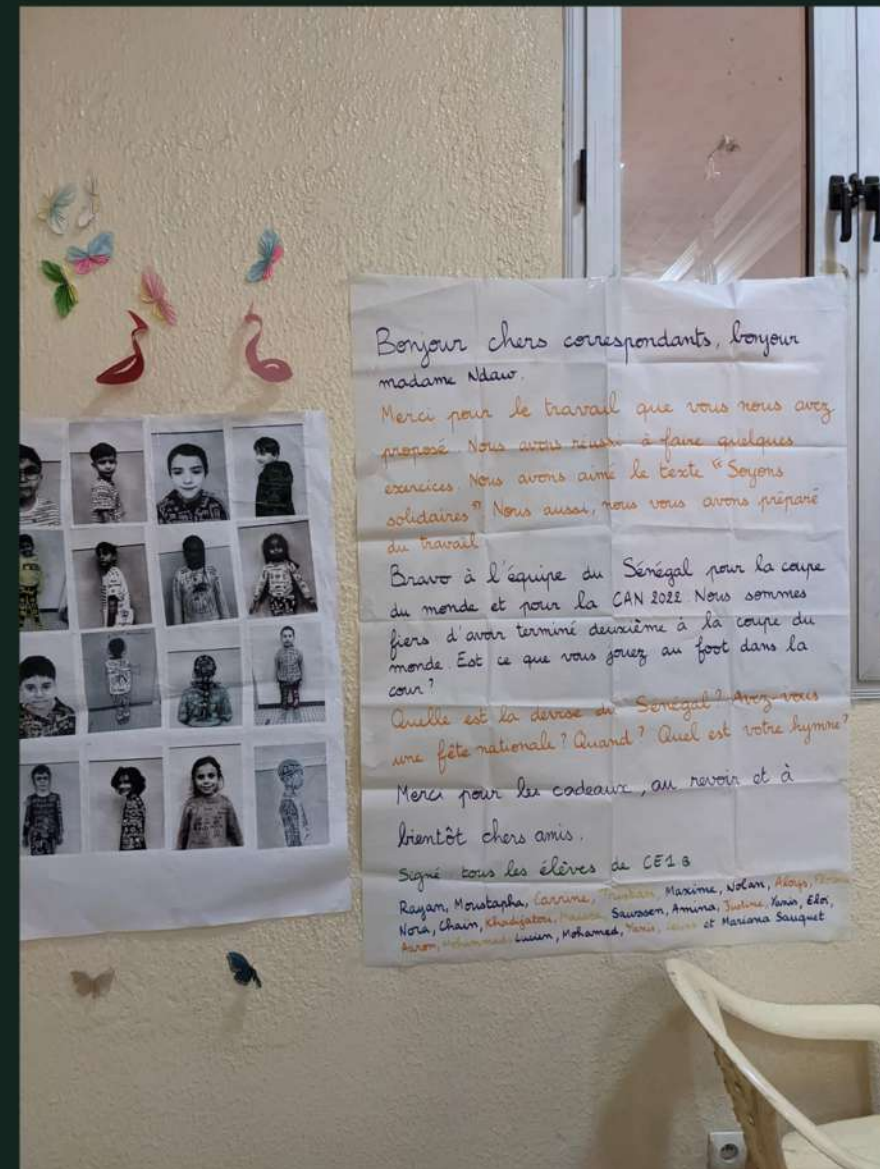 Bonjour chers correspondants, bonjour
madame Ndaw.
Merci pour le travail que vous nous avez
proposé. Nous avons réussi à faire quelques
exercices. Nous avons aimé le texte "Soyons
solidaires" Nous aussi, nous vous avons préparé
du travail.
Bravo à l'équipe du Sénégal pour la coupe
du monde et pour la CAN 2022 Nous sommes
fiers d'avoir terminé deuxième à la coupe du
monde. Est ce que vous jouez au foot dans la
cour?
Quelle est la devise du Sénégal? Avez-vous
une fête nationale? Quand? Quel est votre hymne?
Merci pour les cadeaux, au revoir et à
bientôt chers amis.
Signé tous les élèves de CE1 B
Rayan, Moustapha, Corrine, Maxime, Nolan, Aloys,
Nora, Chain, Khadijatou, Sawssen, Amina, Justine, Yanis, Eloi,
Aaron, Mohammed, Lucien, Mohamed, Yanis, et Mariana Sauquet